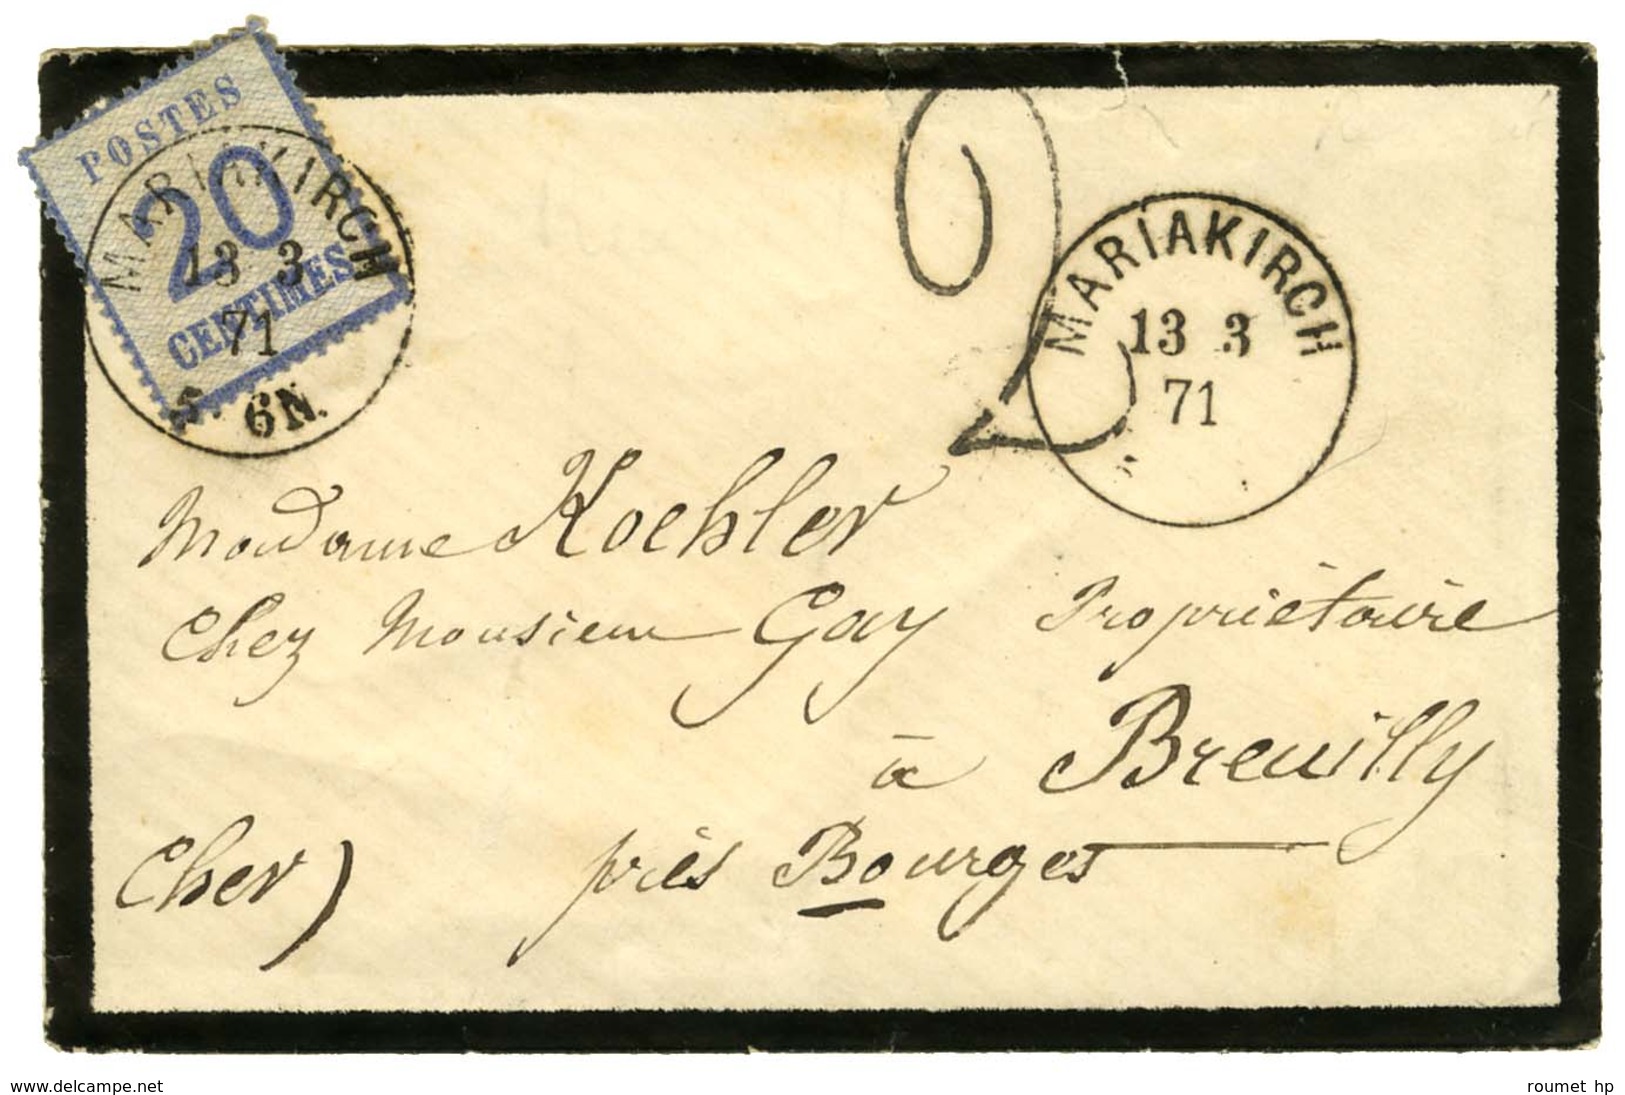 POSTES
20
CENTIMES
MARIAKIRCH
13 3
71
5. 6N.
2
MARIAKIRCH
13 3
71
Madame Koehler
Chez Monsieur Gay Propriétaire
à Breuilly
près Bourges
Cher)
www.delcampe.net
roumet hp